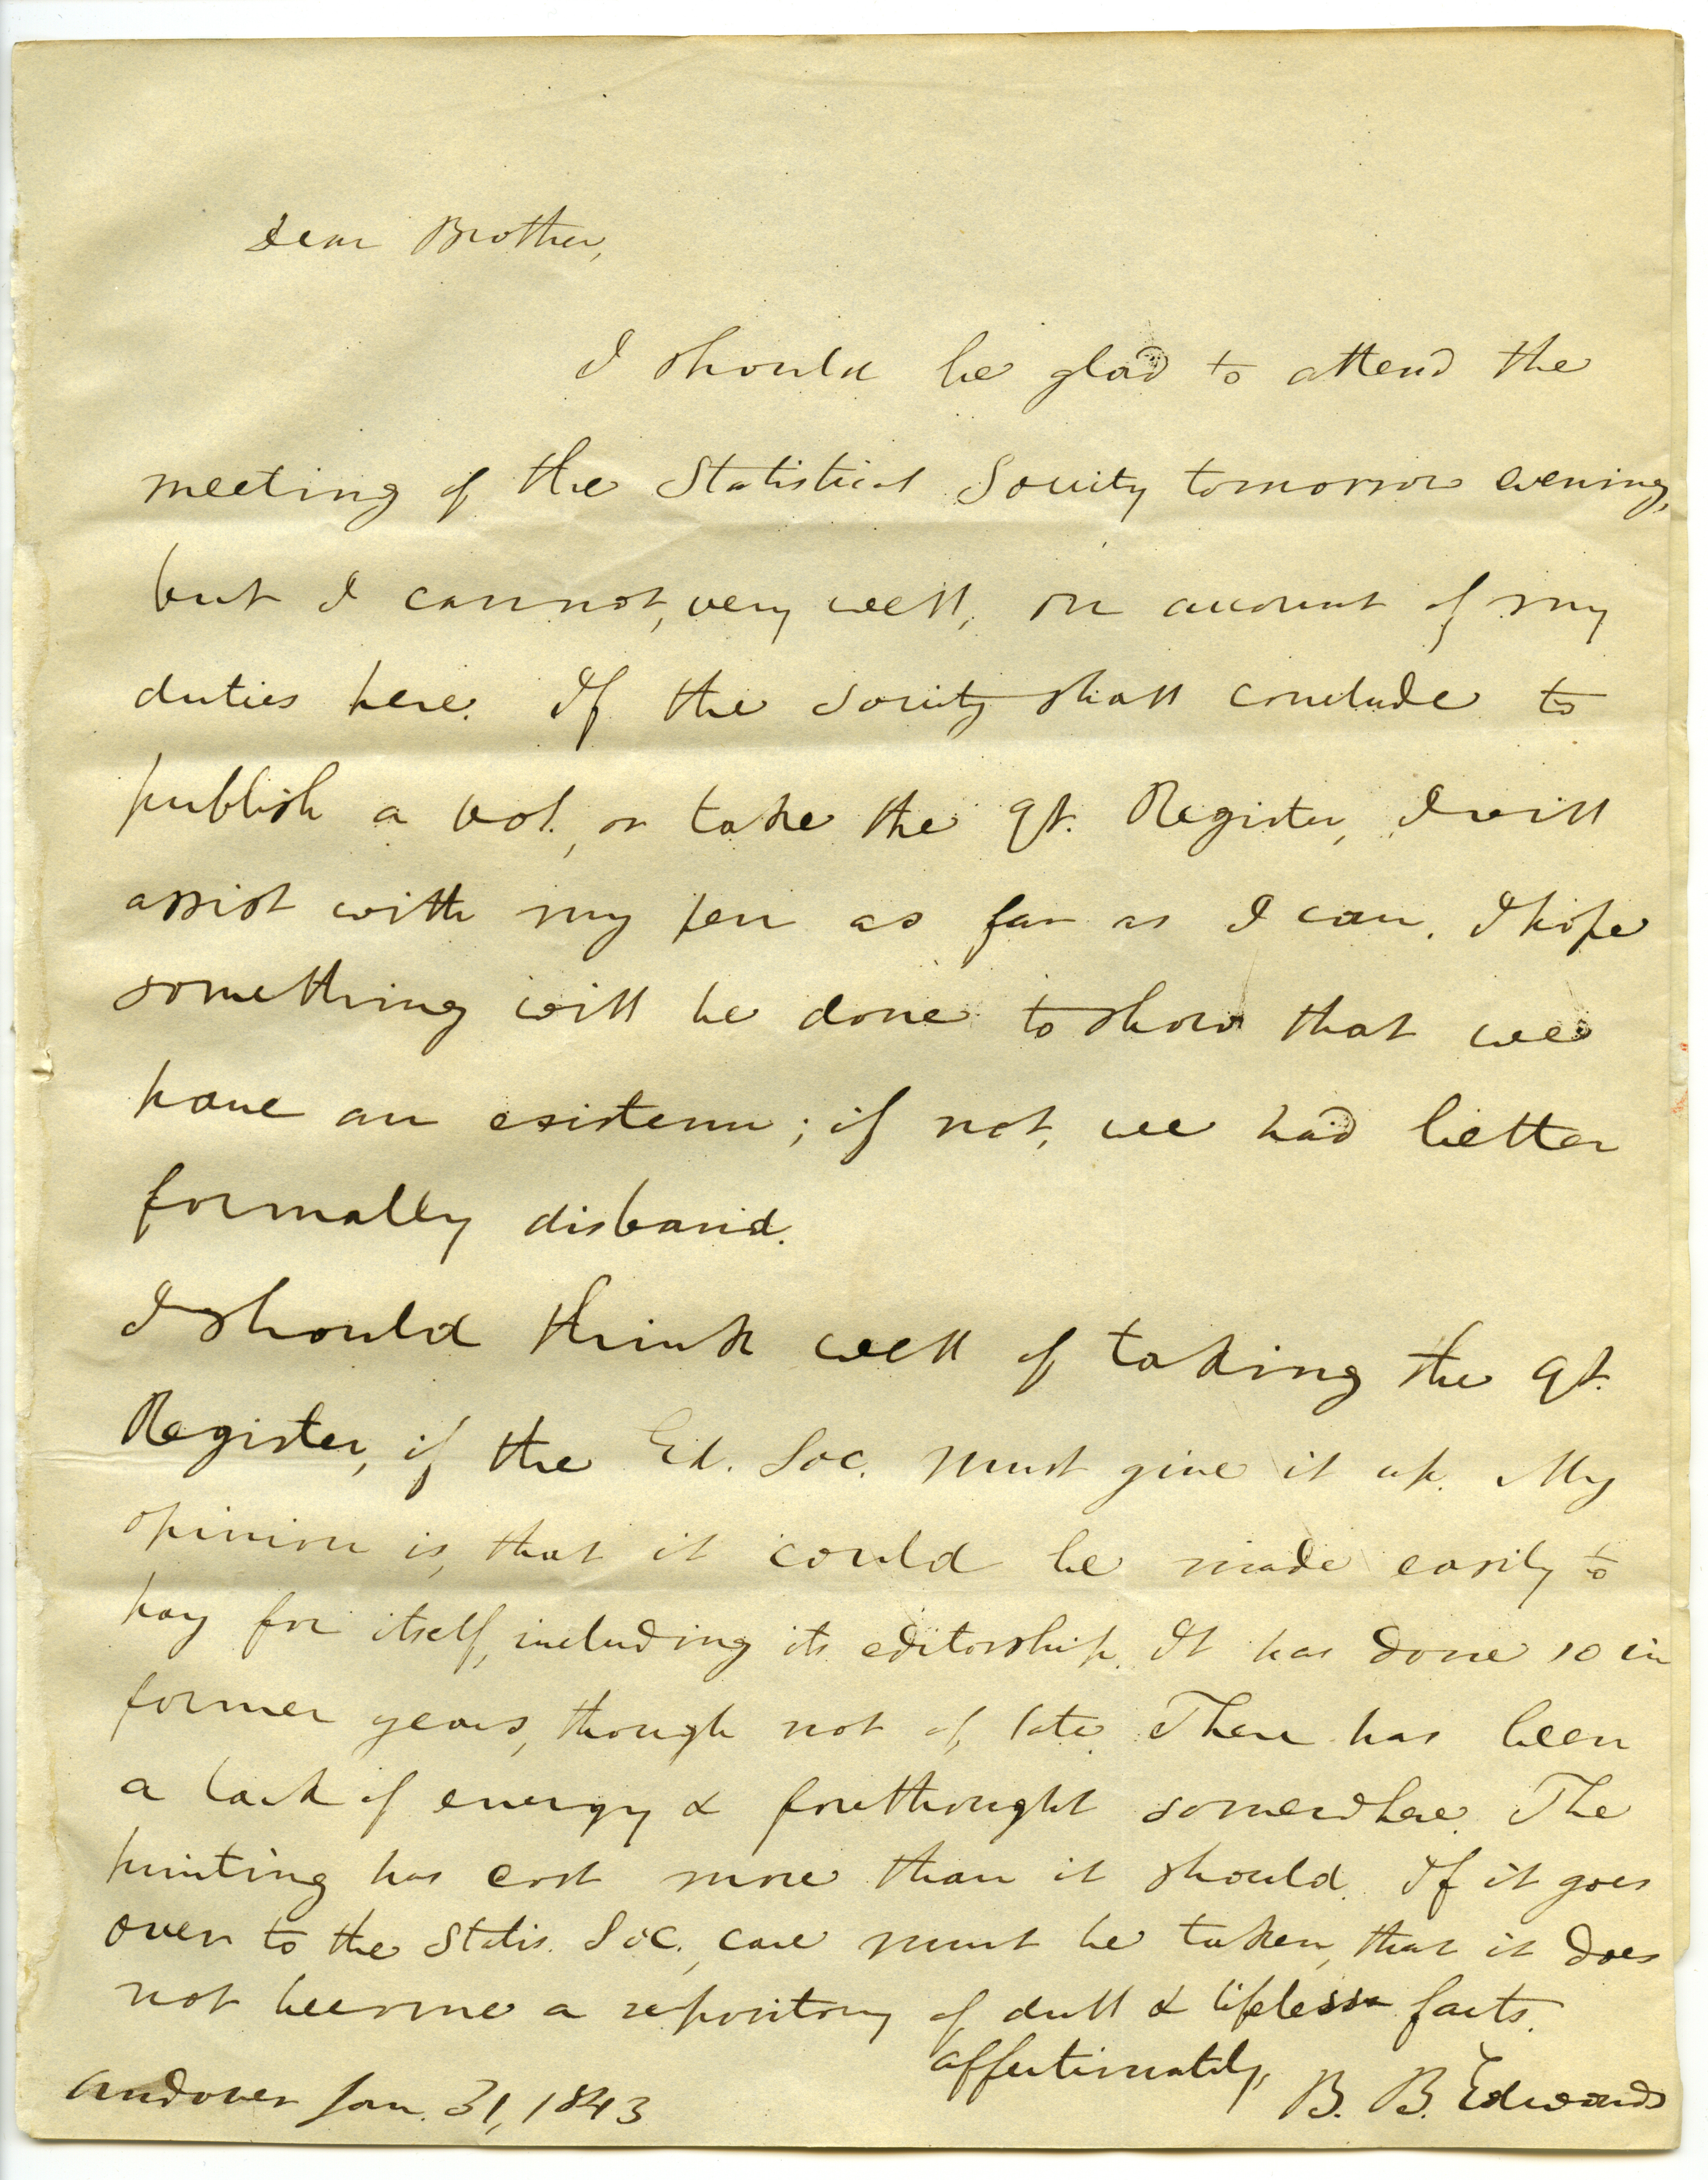 Dear Brother,
I should be glad to attend the
meeting of the Statistical Society tomorrow evening,
but I cannot, very well, on account of my
duties here. If the society shall conclude to
publish a vol., or take the qt. Register, I will
assist with my pen as far as I can. I hope
something will be done to show that we
have an existence; if not, we had better
formally disband.
I should think well of taking the qt.
Register, if the Ed. Soc. must give it up. My
opinion is, that it could be made easily to
pay for itself, including its editorship. It has done so in
former years, though not of late. There has been
a lack of energy & forethought somewhere. The
printing has cost more than it should. If it goes
over to the Statis. Soc., care must be taken, that it does
not become a repository of dull & lifeless facts.
affectionately,
B. B. Edwards
Andover Jan. 31, 1843